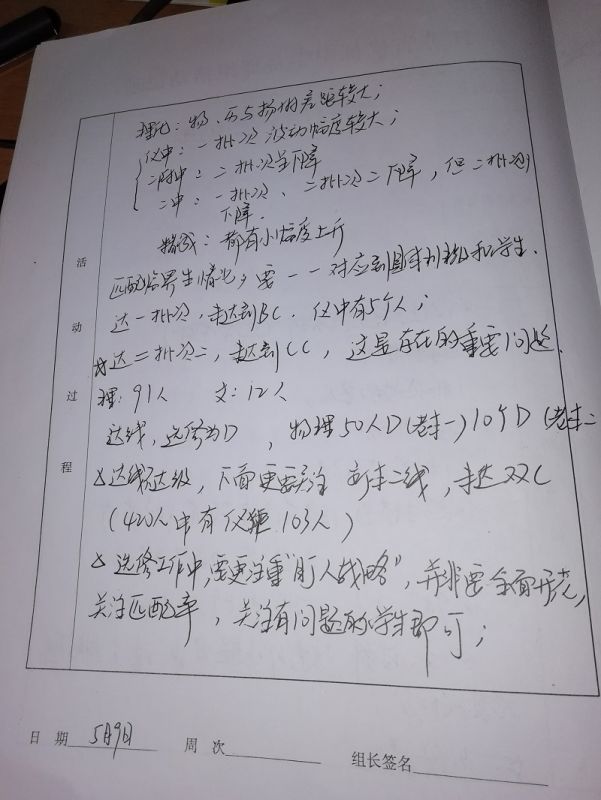 理化：物、历与扬州差距较大；
仪中：一批次波动幅度较大；
二附中：二批次呈下降
二中：一批次、二批次二下降，但二批次
下降.
精诚：都有小幅度上升
匹配临界生情况，要一一对应到和学生.
达一批次，未达到BC. 仪中有5个人；
达二批次二，未达到CC，这是存在的重要问题.
理：91人 文：12人
达线，选修为D，物理50人D(老本一)10个D(老本二
△达线达级，下面更要关注新本二线，未达双C
(420人中有仪征103人)
△选修工作中，需更注重"盯人战略"，并非要全面开花，
关注匹配率，关注有问题的学生即可；
活
动
过
程
日 期 5月9日 周 次 组长签名